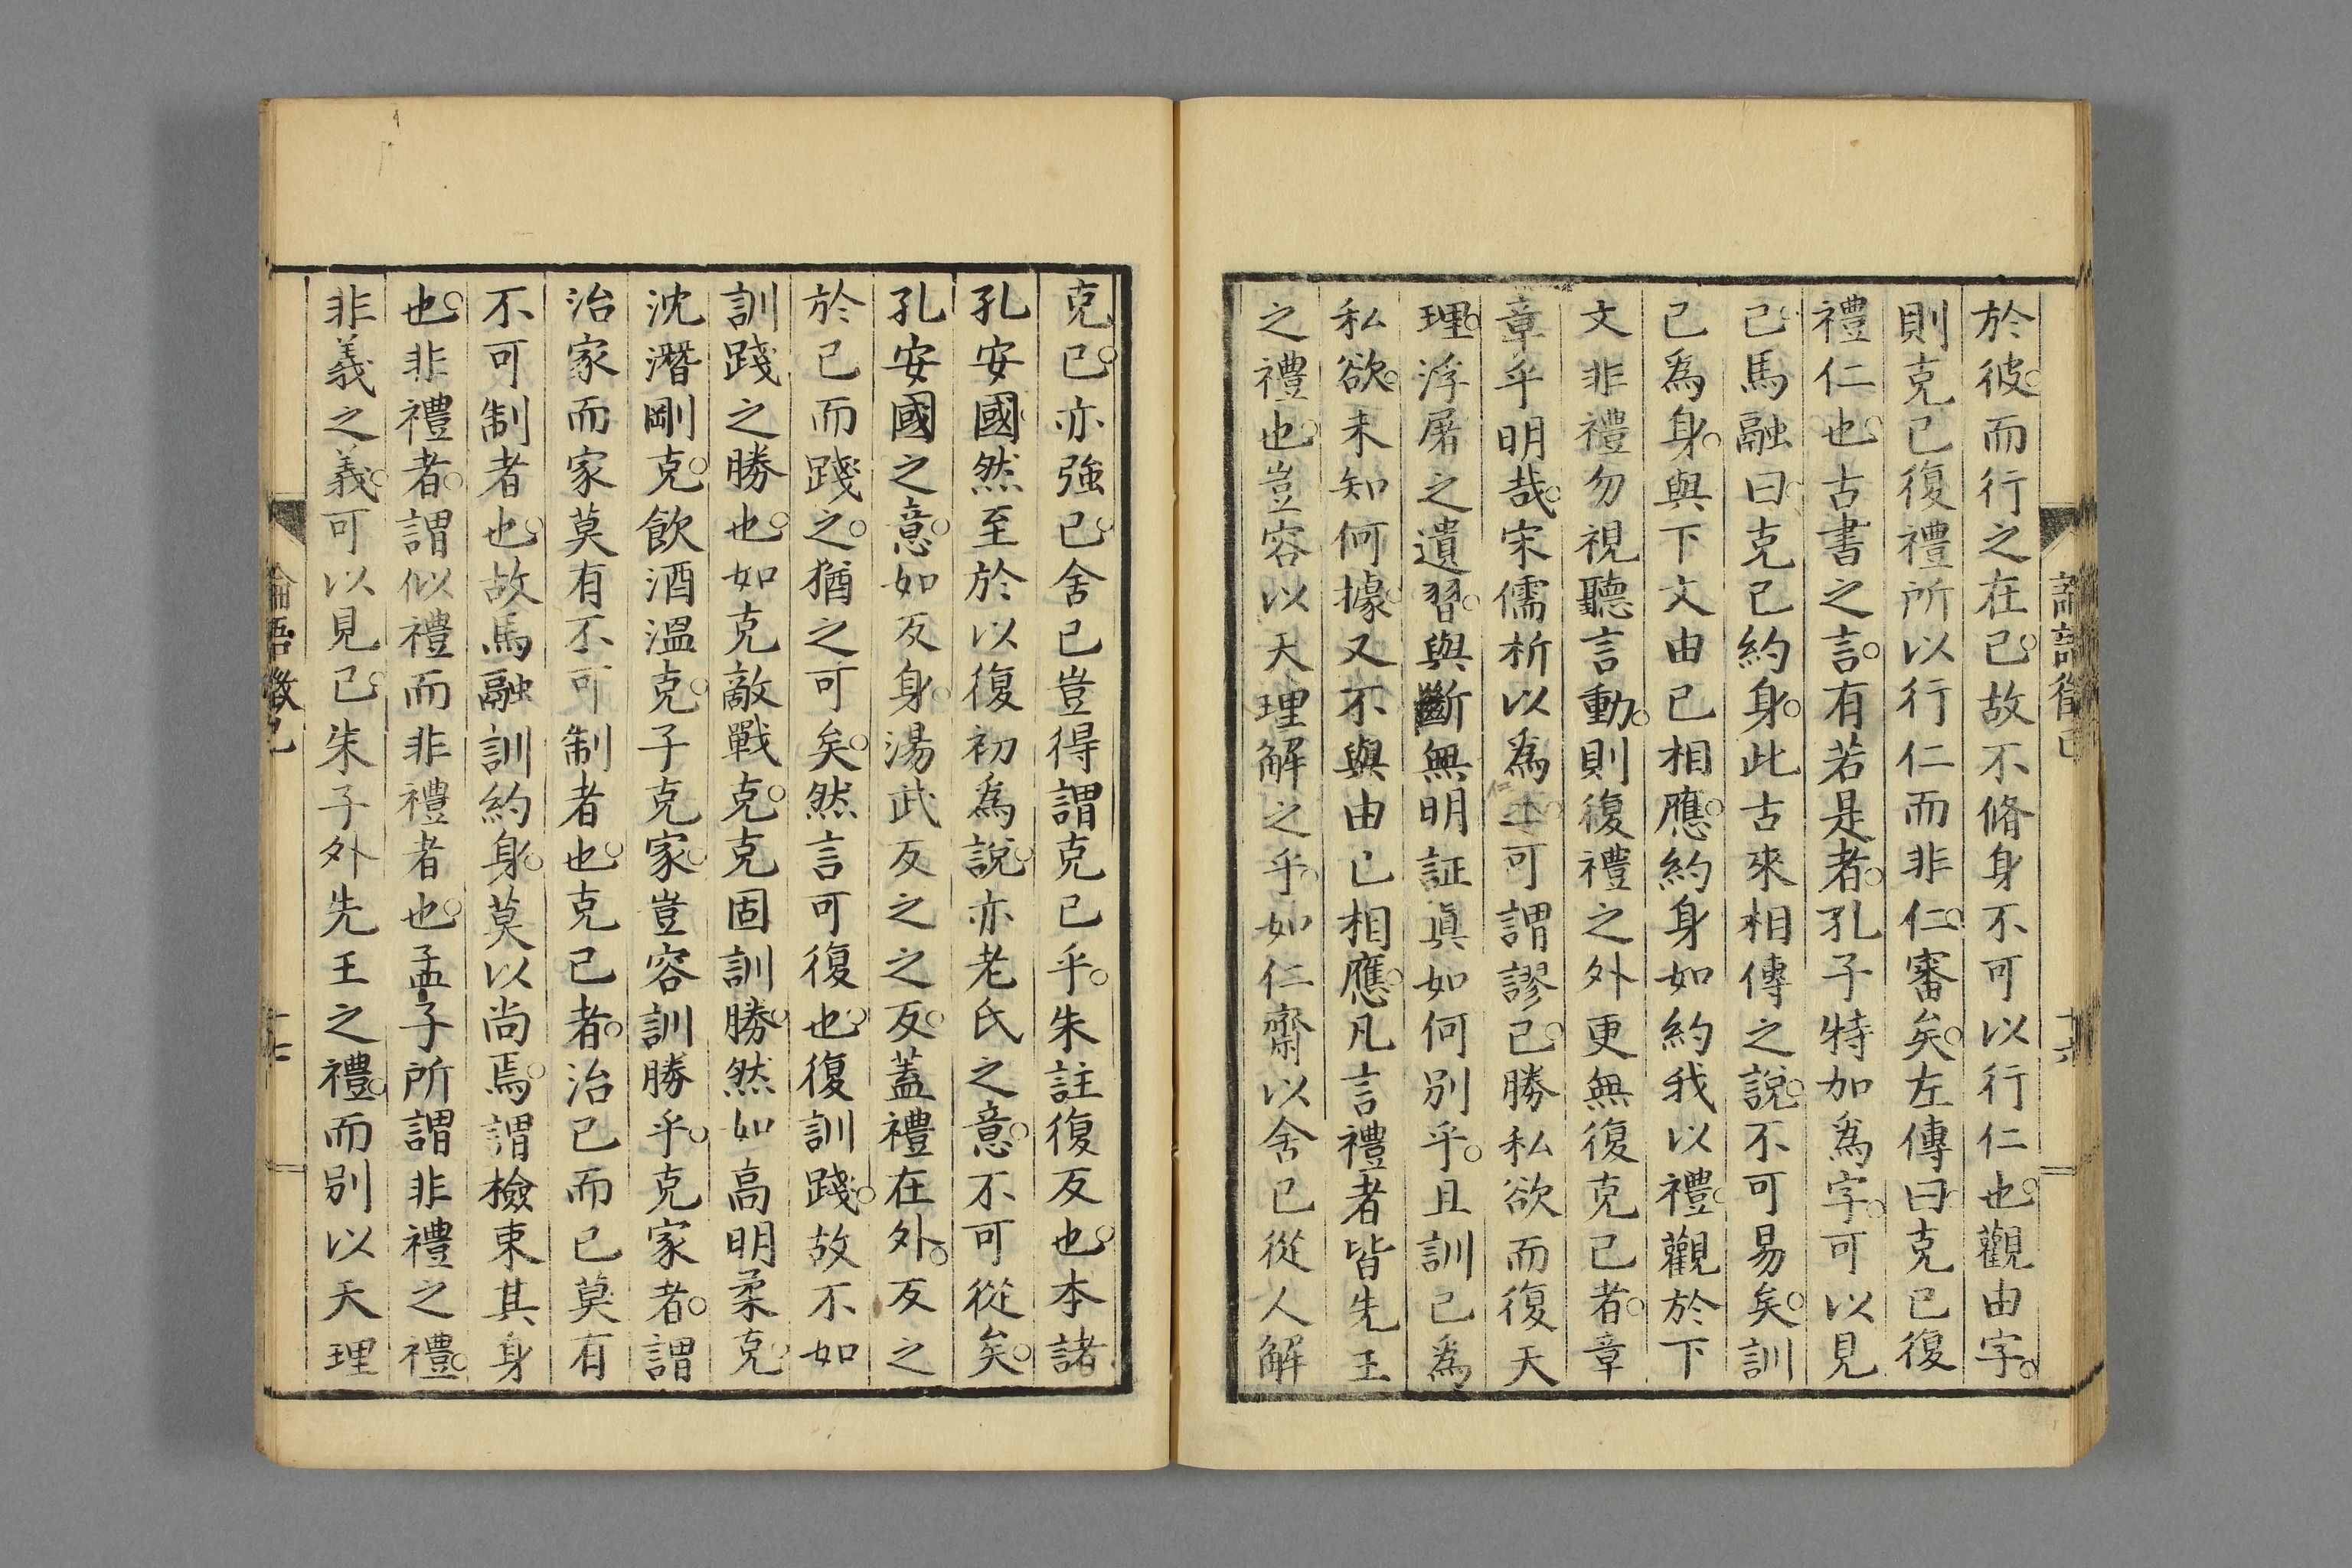 於彼。而行之在己。故不脩身不可以行仁也。觀由字。
則克己復禮所以行仁而非仁。審矣。左傳曰。克己復
禮仁也。古書之言。有若是者。孔子特加爲字。可以見
己。馬融曰。克己約身。此古來相傳之說。不可易矣。訓
己爲身。與下文由己相應。約身如約我以禮。觀於下
文非禮勿視聽言動。則復禮之外更無復克己者。章
章乎明哉。宋儒析以爲仁。可謂謬已。勝私欲而復天
理。浮屠之遺習。與斷無明証眞如何別乎。且訓己爲
私欲。未知何據。又不與由己相應。凡言禮者皆先王
之禮也。豈容以天理解之乎。如仁齋以舍己從人解
克己。亦強已。舍己豈得謂克己乎。朱註復反也。本諸
孔安國。然至於以復初爲說。亦老氏之意。不可從矣。
孔安國之意。如反身。湯武反之之反。蓋禮在外。反之
於己而踐之。猶之可矣。然言可復也。復訓踐。故不如
訓踐之勝也。如克敵戰克。克固訓勝。然如高明柔克。
沈潛剛克。飲酒溫克。子克家。豈容訓勝乎。克家者。謂
治家而家莫有不可制者也。克己者。治己而已莫有
不可制者也。故馬融訓約身。莫以尚焉。謂檢束其身
也。非禮者。謂似禮而非禮者也。孟子所謂非禮之禮。
非義之義。可以見已。朱子外先王之禮。而別以天理
論語徵己
十七